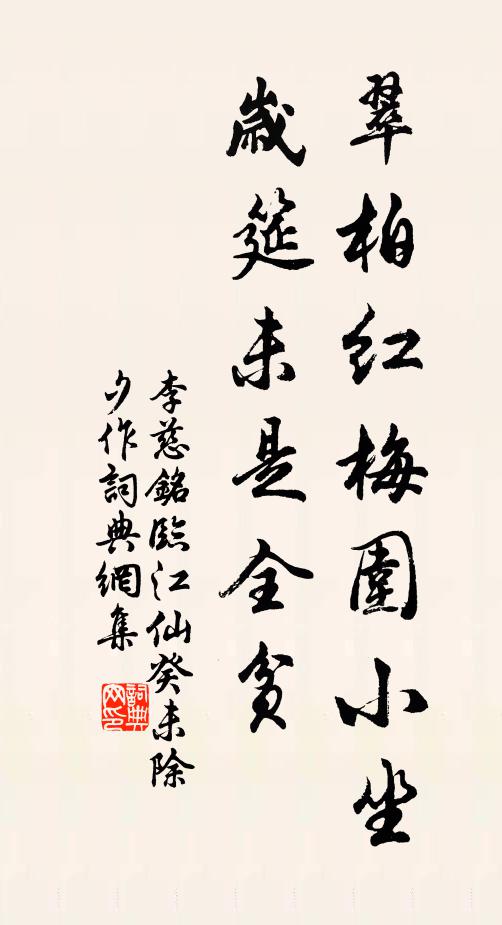 翠柏红梅围小坐
歲筵未是全贫
李慈銘臨江仙癸未除
夕作詞典網集
詞典
网印